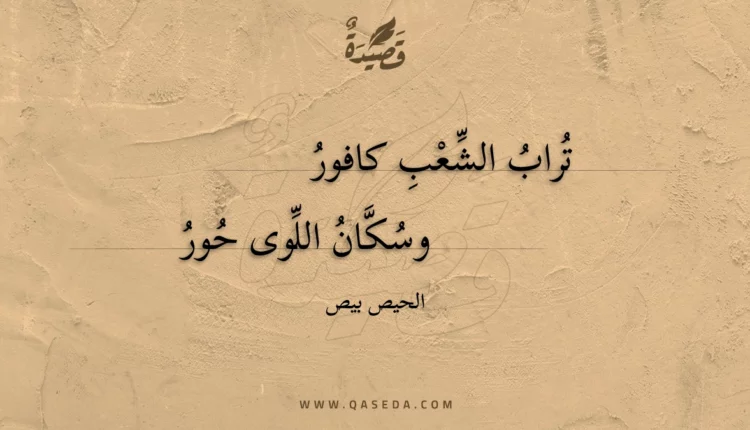 قَصِيْدَةٌ
تُرابُ الشِّعْبِ كافورُ
وسُكَّانُ اللِّوى حُورُ
الحيص بيص
WWW.QASEDA.COM